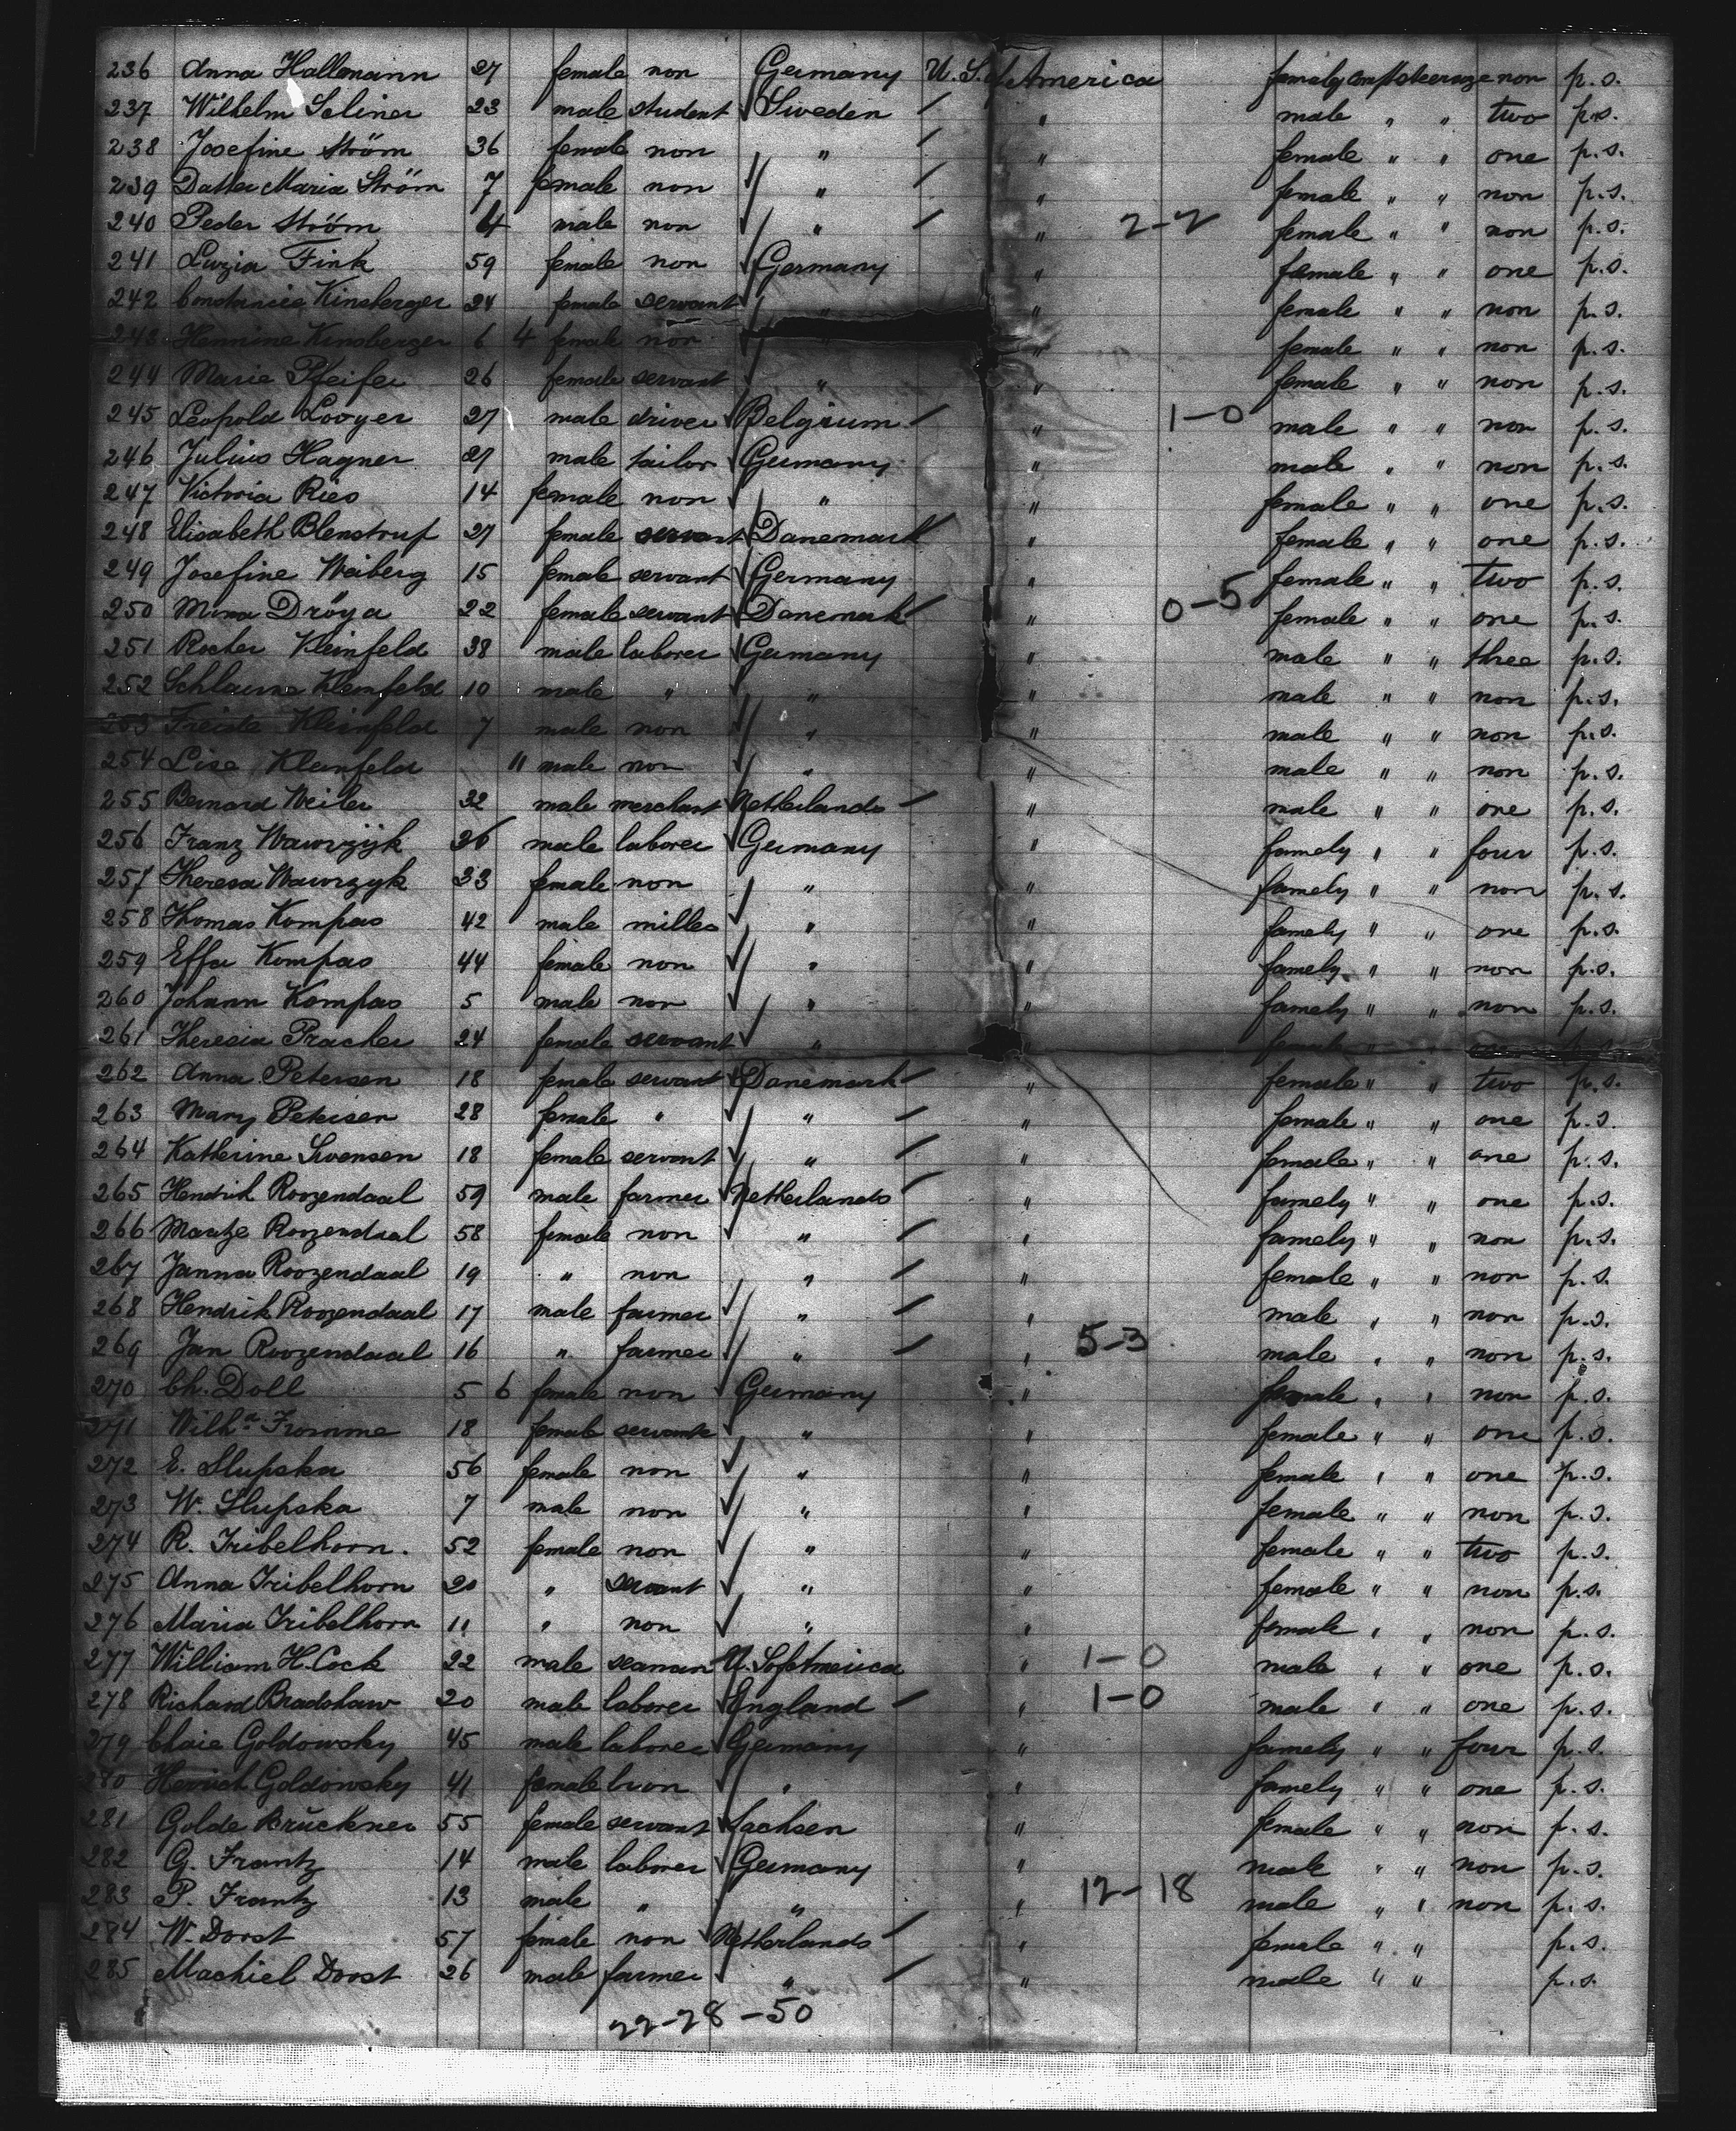 236 Anna Hallmann 27 female non Germany U. S. of America famely compt steerage non p. s.
237 Wilhelm Seliner 23 male student Sweden " male " " two p. s.
238 Josefine Ström 36 female non " " female " " one p. s.
239 Datter Maria Ström 7 female non " " female " " non p. s.
240 Peder Ström 4 male non " " 2-2 female " " non p. s.
241 Luzia Fink 59 female non Germany " female " " one p. s.
242 Constancia Kinsberger 24 female servant " " female " " non p. s.
243 Hermine Kinsberger 6 4 female non " " female " " non p. s.
244 Marie Pfeifer 26 female servant " " female " " non p. s.
245 Leopold Looyer 27 male driver Belgium " 1-0 male " " non p. s.
246 Julius Hagner 27 male tailor Germany " male " " non p. s.
247 Victoria Ries 14 female non " " female " " one p. s.
248 Elisabeth Blenstrup 27 female servant Danemark " female " " one p. s.
249 Josefine Weiberg 15 female servant Germany " female " " two p. s.
250 Mina Dröya 22 female servant Danemark " 0-5 female " " one p. s.
251 Rocher Kleinfeld 38 male laborer Germany " male " " three p. s.
252 Schlaume Kleinfeld 10 male " " " male " " non p. s.
253 Freide Kleinfeld 7 male non " " male " " non p. s.
254 Lise Kleinfeld 11 male non " " male " " non p. s.
255 Bernard Weiler 32 male merchant Netherlands " male " " one p. s.
256 Franz Wawrzyk 26 male laborer Germany " famely " " four p. s.
257 Theresa Wawrzyk 33 female non " " famely " " non p. s.
258 Thomas Kompas 42 male miller " " famely " " one p. s.
259 Effa Kompas 44 female non " " famely " " non p. s.
260 Johann Kompas 5 male non " " famely " " non p. s.
261 Theresia Pracher 24 female servant " female " " one p. s.
262 Anna Petersen 18 female servant Danemark " female " " two p. s.
263 Mary Petersen 28 female " " " female " " one p. s.
264 Katherine Svensen 18 female servant " " female " " one p. s.
265 Hendrik Roozendaal 59 male farmer Netherlands " famely " " one p. s.
266 Maatje Roozendaal 58 female non " " famely " " non p. s.
267 Janna Roozendaal 19 " non " " female " " non p. s.
268 Hendrik Roozendaal 17 male farmer " " male " " non p. s.
269 Jan Roozendaal 16 " farmer " " 5-3 male " " non p. s.
270 Ch. Doll 5 6 female non Germany " female " " non p. s.
271 Wilh.a Fromme 18 female servant " " female " " one p. s.
272 E. Slupska 56 female non " " female " " one p. s.
273 W. Slupska 7 male non " " female " " non p. s.
274 R. Tribelhorn. 52 female non " " female " " two p. s.
275 Anna Tribelhorn 20 " servant " " female " " non p. s.
276 Maria Tribelhorn 11 " non " " female " " non p. s.
277 William H. Cock 22 male seaman U. S. of America " 1-0 male " " one p. s.
278 Richard Bradshaw 20 male laborer England " 1-0 male " " one p. s.
279 Chaie Goldowsky 45 male laborer Germany " famely " " four p. s.
280 Goldowsky 41 female " " famely " " one p. s.
281 Golde Brückner 55 female servant Sachsen " female " " non p. s.
282 G. Frantz 14 male laborer Germany " male " " non p. s.
283 P. Frantz 13 male " " " 12-18 male " " non p. s.
284 W. Dorst 57 female non Netherlands " female " " p. s.
285 Machiel Dorst 26 male farmer " " male " " p. s.
22-28-50